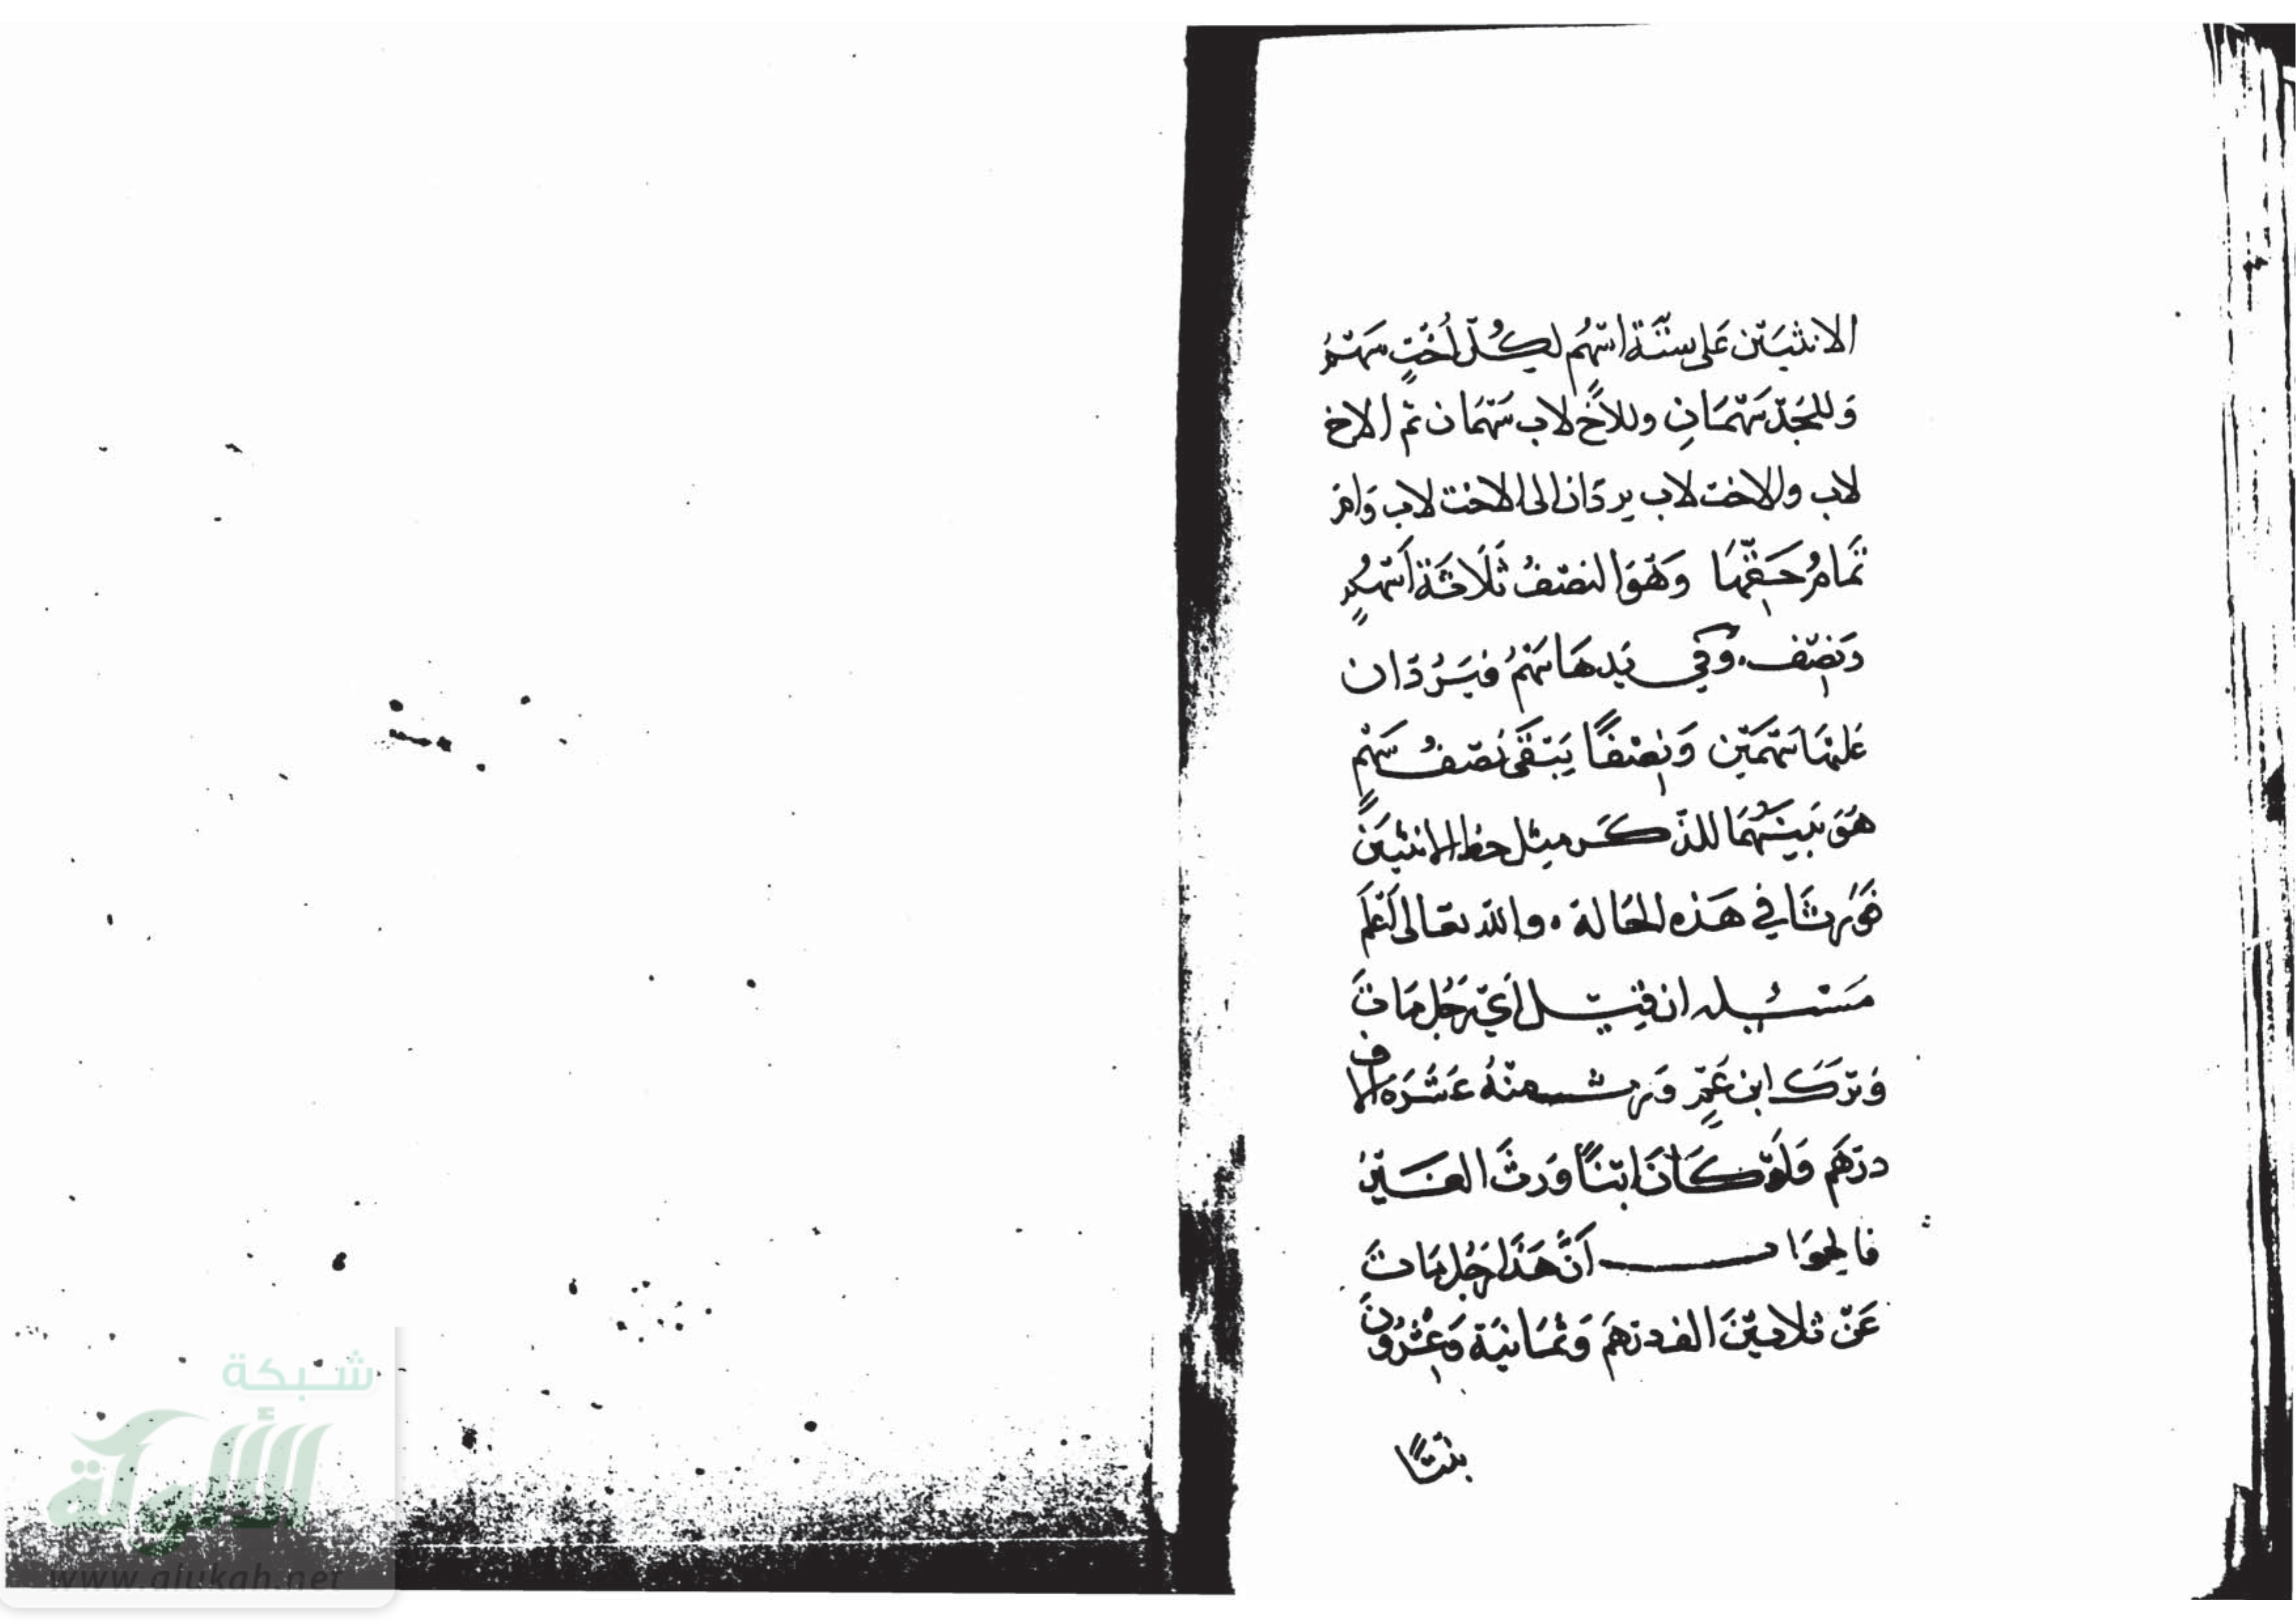 الانثيَين عَلى ستّة اسْهُم لكُلّ اُخْتٍ سَهْمٌ
وَللجَدّ سَهْمَانِ وللأخ لاب سَهْمان ثمّ الاخ
لاب والاخت لاب يردّان الى الاخت لاب وَام
تمَامُ حَقِّهَا وَهْوَ النصْفُ ثَلَاثَة اَسْهُمٍ
وَنِصْف. وَفي يَدهَا سَهْمٌ فيَرُدّان
عَليْهَا سَهْمَيْن وَنِصْفًا يَبْقَى نصْفُ سَهْمٍ
هَوَ بَيْنَهُمَا للذّكَر مِثل حظ الانثيَين
فوَرثَا في هَذه الحَالة. والله تعَالى اَعْلَم
مَسْئلة ان قيْل اَيّ رَجُل مَاتَ
وَتَرَكَ ابن عَمٍّ وَرث منْهُ عَشَرَة الاف
درْهَم وَلَوْ كَانَ ابْنًا وَرثَ الفَيْن
فالجوَاب اَنَّ هَذَا رَجُل مَاتَ
عَنْ ثلاثيْنَ الف درْهَم وَثمَانيَة وَعِشْرُونَ
بنْتًا
شبكة
الألوكة
www.alukah.net